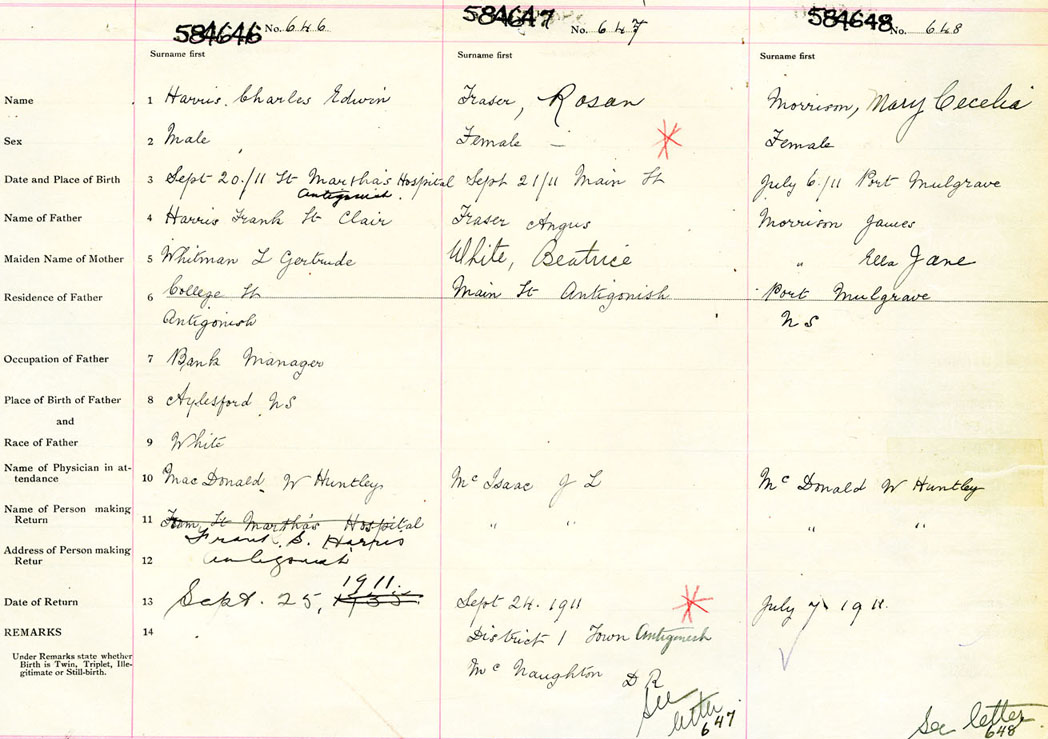 584646 No. 646
584647 No. 647
584648 No. 648
Surname first
Surname first
Surname first
Name 1 Harris, Charles Edwin
Fraser, Rosan
Morrison, Mary Cecelia
Sex 2 Male
Female –
Female
Date and Place of Birth 3 Sept 20/11 St Martha's Hospital
Antigonish.
Sept 21/11 Main St
July 6/11 Port Mulgrave
Name of Father 4 Harris Frank St Clair
Fraser Angus
Morrison James
Maiden Name of Mother 5 Whitman L Gertrude
White, Beatrice
" Ella Jane
Residence of Father 6 College St
Antigonish
Main St Antigonish
Port Mulgrave
N S
Occupation of Father 7 Bank Manager
Place of Birth of Father 8 Aylesford N S
and
Race of Father 9 White
Name of Physician in at-
tendance 10 MacDonald W Huntley
Mc Isaac J L
Mc Donald W Huntley
Name of Person making
Return 11 St Martha's Hospital
Frank S. Harris
" "
" "
Address of Person making
Retur 12 Antigonish
Date of Return 13 Sept. 25, 1911.
Sept 24. 1911
July 7 1911.
REMARKS 14
District 1 Town Antigonish
Under Remarks state whether
Birth is Twin, Triplet, Ille-
gitimate or Still-birth.
Mc Naughton D R
See
letter
647
See letter
648